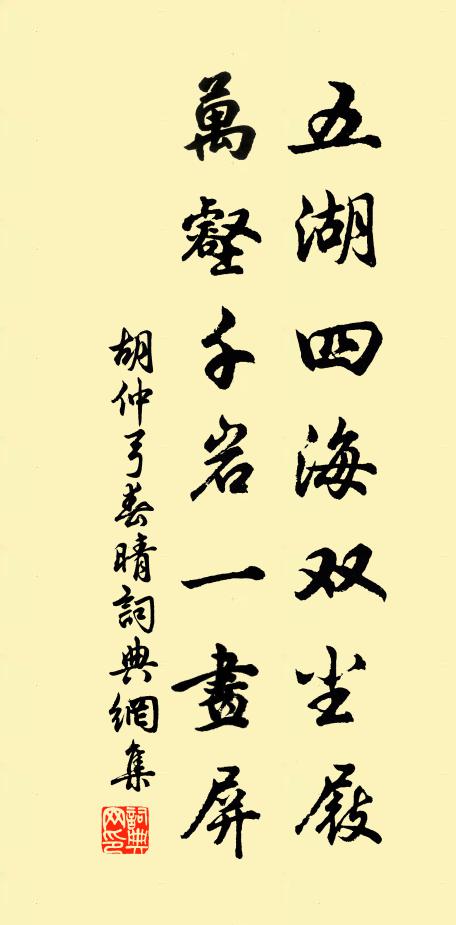 五湖四海双尘屐
萬壑千岩一畫屏
胡仲弓春晴詞典網集
詞典网印